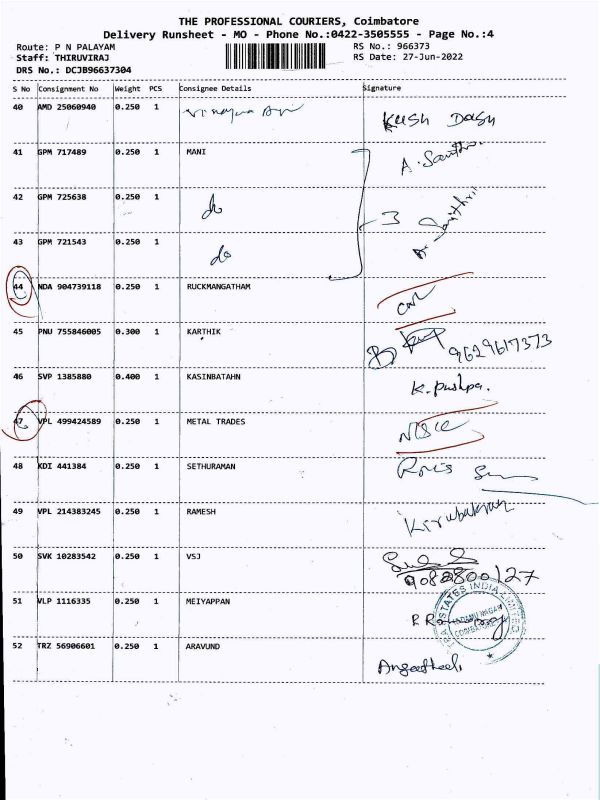 THE PROFESSIONAL COURIERS, Coimbatore
Delivery Runsheet - MO - Phone No.:0422-3505555 - Page No.:4
Route: P N PALAYAM RS No.: 966373
Staff: THIRUVIRAJ RS Date: 27-Jun-2022
DRS No.: DCJB96637304
S No Consignment No Weight PCS Consignee Details Signature
40 AMD 25060940 0.250 1 KUSH DASH
41 GPM 717489 0.250 1 MANI A. Santhi
42 GPM 725638 0.250 1 do 3
43 GPM 721543 0.250 1 do
44 NDA 904739118 0.250 1 RUCKMANGATHAM
45 PNU 755846005 0.300 1 KARTHIK 9629617373
46 SVP 1385880 0.400 1 KASINBATAHN K. pushpa.
47 VPL 499424589 0.250 1 METAL TRADES
48 KDI 441384 0.250 1 SETHURAMAN
49 VPL 214383245 0.250 1 RAMESH Kirubakaran
50 SVK 10283542 0.250 1 VSJ
51 VLP 1116335 0.250 1 MEIYAPPAN
ESTATES INDIA LIMITED
COIMBATORE
52 TRZ 56906601 0.250 1 ARAVUND